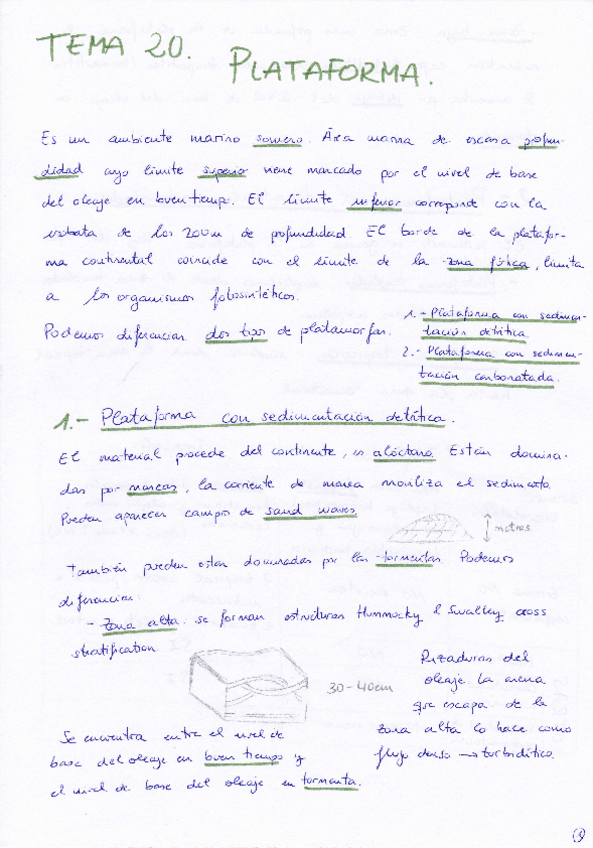 TEMA 20. PLATAFORMA.
Es un ambiente marino somero. Área marina de escasa profun-
didad cuyo límite superior viene marcado por el nivel de base
del oleaje en buen tiempo. El límite inferior corresponde con la
isobata de los 200m de profundidad El borde de la platafor-
ma continental coincide con el límite de la zona fótica, limita
a los organismos fotosintéticos.
Podemos diferenciar dos tipos de
1.- Plataforma con sedimen-
tación detrítica
2.- Plataforma con sedimen-
tación carbonatada.
1.- Plataforma con sedimentación detrítica.
El material procede del continente, es alóctono Están domina-
das por mareas, la corriente de marea moviliza el sedimento.
Pueden aparecer campos de sand waves
metros
También pueden estar dominadas por las tormentas. Podemos
diferenciar:
- Zona alta. se forman estructuras Hummocky & Swalley cross
stratification
30-40cm
Se encuentra entre el nivel de
base del oleaje en buen tiempo y
el nivel de base del oleaje en tormenta.
Rizaduras del
oleaje. La arena
que escapa de la
zona alta lo hace como
flujo denso → turbidítico.